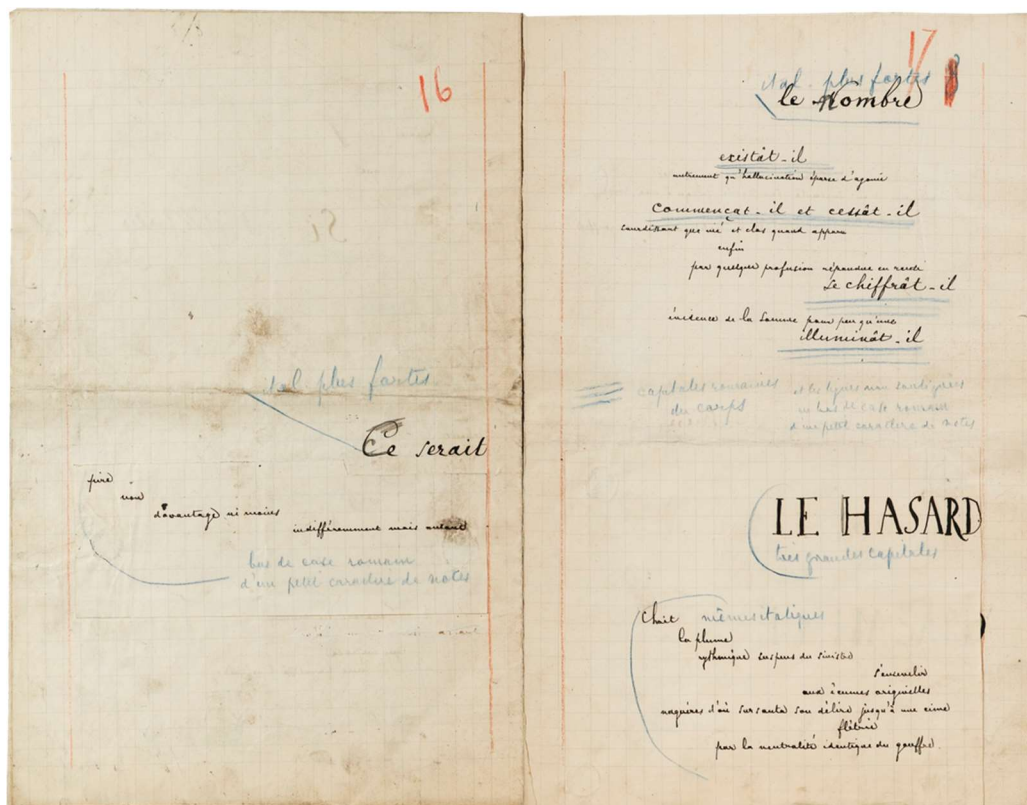 16
ital. plus fortes
Ce serait
pire
non
davantage ni moins
indifféremment mais autant
bas de casse romain
d'un petit caractère de notes
17
ital. plus fortes
le Nombre
existât-il
autrement qu'hallucination éparse d'agonie
commençât-il et cessât-il
sourdissant que nié et clos quand apparu
enfin
par quelque profusion répandue en rareté
se chiffrât-il
évidence de la somme pour peu qu'une
illuminât-il
capitales romaines
du corps
et les lignes non soulignées
en bas de casse romain
d'un petit caractère de notes
LE HASARD
très grandes capitales
Choit
mêmes italiques
la plume
rythmique suspens du sinistre
s'ensevelir
aux écumes originelles
naguères d'où sursauta son délire jusqu'à une cime
flétrie
par la neutralité identique du gouffre.